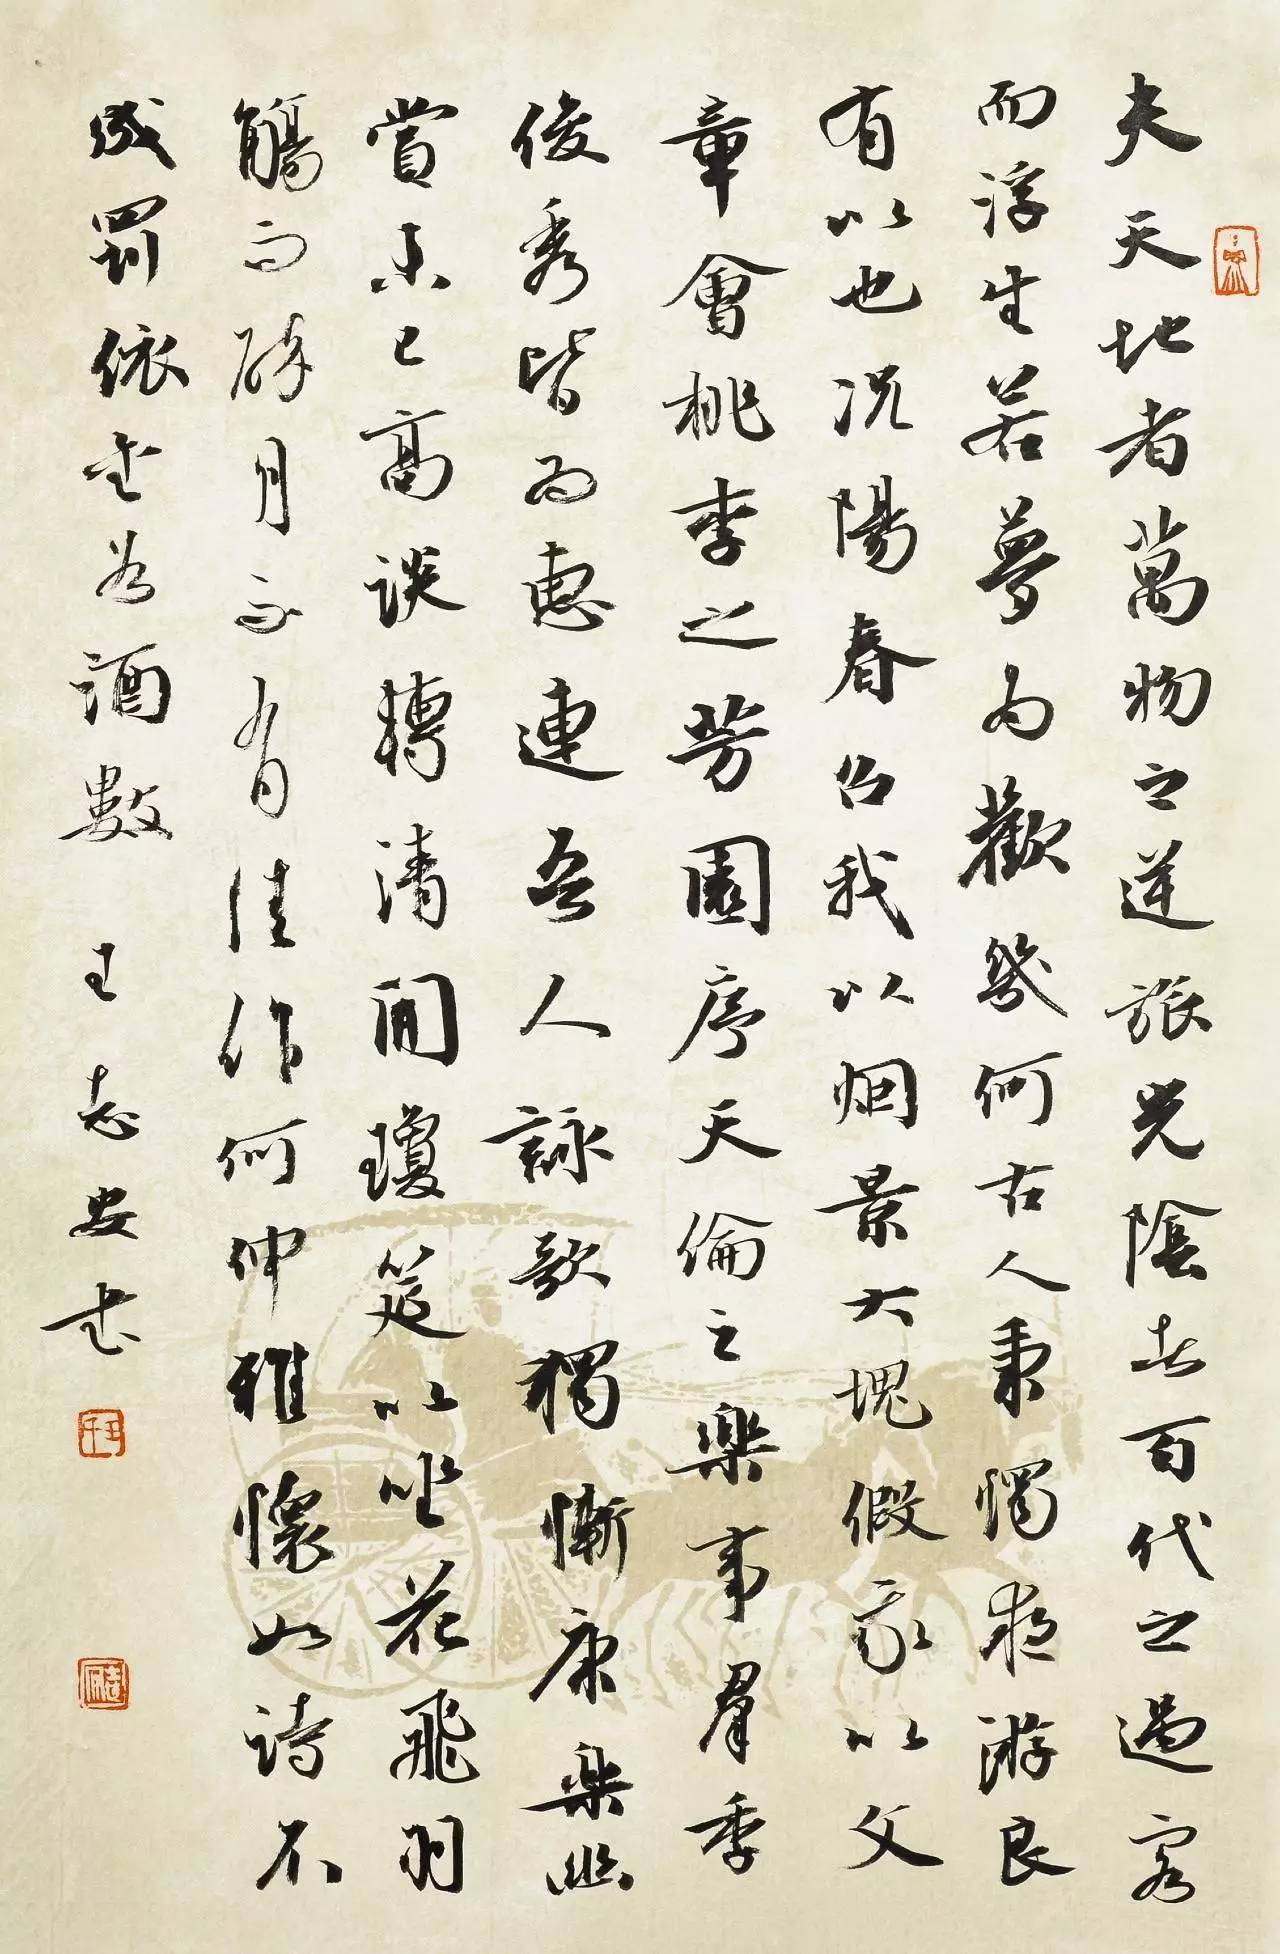 夫天地者萬物之逆旅光陰者百代之過客
而浮生若夢為歡幾何古人秉燭夜游良
有以也況陽春召我以烟景大塊假我以文
章會桃李之芳園序天倫之樂事群季
俊秀皆為惠連吾人詠歌獨慚康樂幽
賞未已高談轉清開瓊筵以坐花飛羽
觴而醉月不有佳作何伸雅懷如詩不
成罰依金谷酒數 王志安書